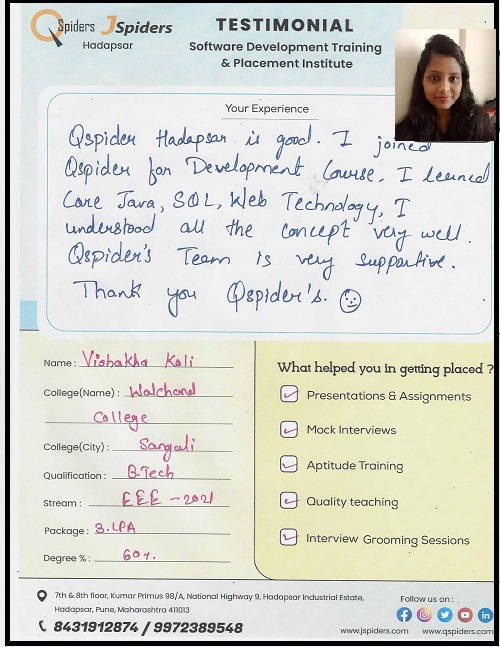 QSpiders JSpiders
Hadapsar
TESTIMONIAL
Software Development Training
& Placement Institute
Your Experience
Qspider Hadapsar is good. I joined
Qspider for Development Course. I learned
Core Java, SQL, Web Technology, I
understood all the concept very well.
Qspider's Team is very supportive.
Thank you Qspider's.
Name : Vishakha Koli
College(Name) : Walchand
College
College(City) : Sangali
Qualification : B.Tech
Stream : EEE - 2021
Package : 3. LPA
Degree % : 60%.
What helped you in getting placed ?
Presentations & Assignments
Mock Interviews
Aptitude Training
Quality teaching
Interview Grooming Sessions
7th & 8th floor, Kumar Primus 98/A, National Highway 9, Hadapsar Industrial Estate,
Hadapsar, Pune, Maharashtra 411013
8431912874 / 9972389548
Follow us on :
www.jspiders.com www.qspiders.com